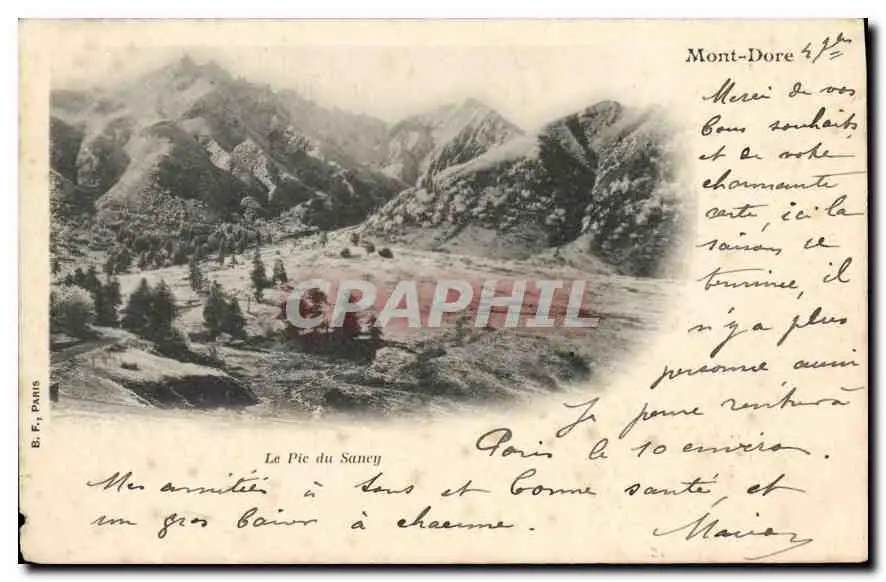 Mont-Dore 4 7bre
Merci de vos
bons souhaits
et de votre
charmante
carte, ici la
saison se
termine, il
n'y a plus
personne aussi
Je pense rentrer à
Paris le 10 environ.
CPARAMA
Le Pic du Sancy
B. F., PARIS
Mes amitiés à tous et bonne santé, et
un gros baiser à chacune.